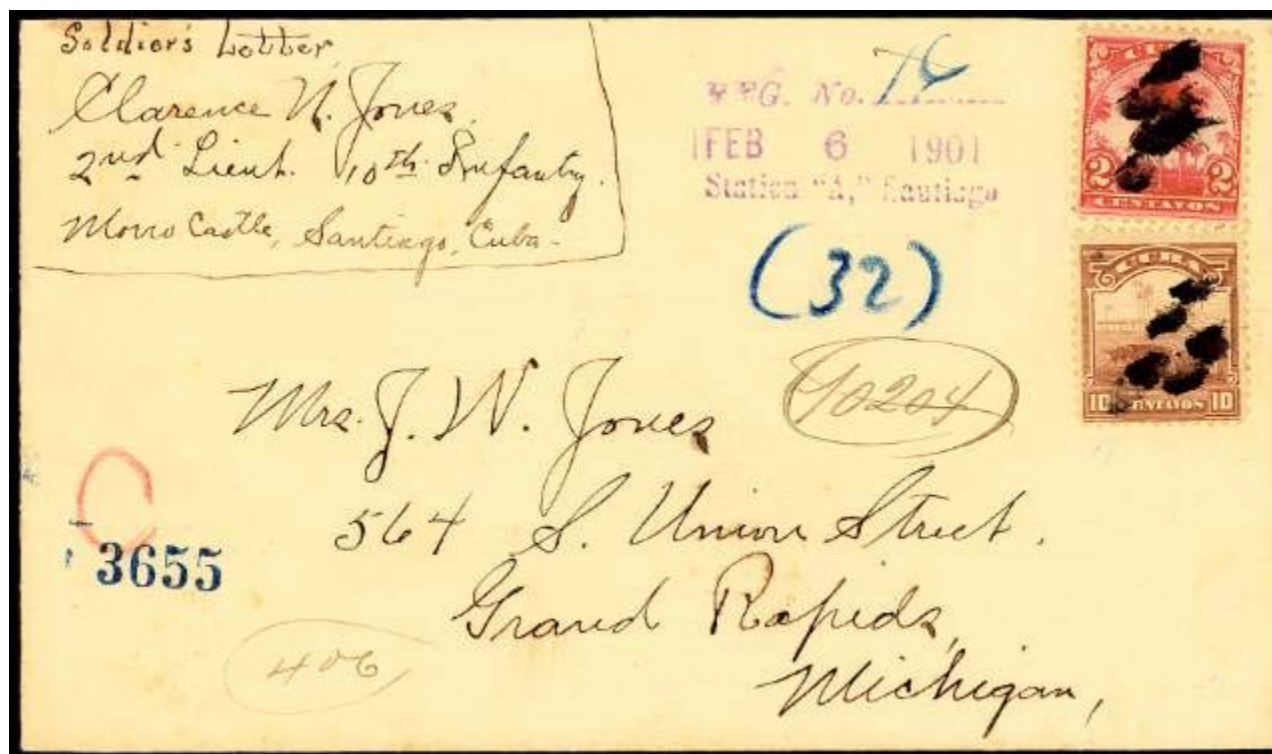 Soldier's Letter
Clarence N. Jones.
2nd Lieut. 10th Infantry.
Morro Castle, Santiago, Cuba-
REG. No. 76
FEB 6 1901
Station "A," Santiago
(32)
CUBA
2 2
CENTAVOS
CUBA
10 CENTAVOS 10
40204
Mrs. J. W. Jones
564 S. Union Street.
Grand Rapids,
Michigan,
3655
406